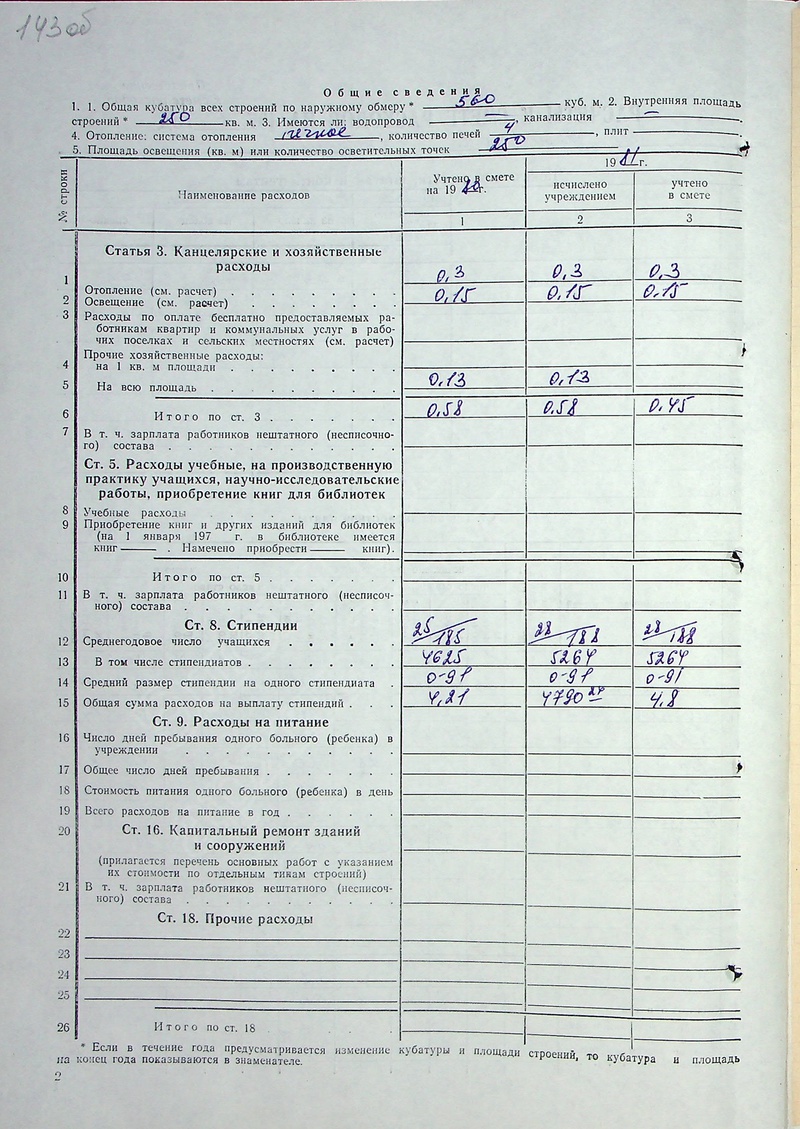 143об
Общие сведения
1. 1. Общая кубатура всех строений по наружному обмеру * 560 куб. м. 2. Внутренняя площадь
строений * 250 кв. м. 3. Имеются ли: водопровод —, канализация —.
4. Отопление: система отопления печное, количество печей 4, плит .
5. Площадь освещения (кв. м) или количество осветительных точек 250
№ строки
Наименование расходов
Учтено в смете
на 19 г.
19 81 г.
исчислено
учреждением
учтено
в смете
1 2 3
Статья 3. Канцелярские и хозяйственные
расходы
1 Отопление (см. расчет) 0,3 0,3 0,3
2 Освещение (см. расчет) 0,15 0,15 0,15
3 Расходы по оплате бесплатно предоставляемых ра-
ботникам квартир и коммунальных услуг в рабо-
чих поселках и сельских местностях (см. расчет)
Прочие хозяйственные расходы:
4 на 1 кв. м площади
5 На всю площадь 0,13 0,13
6 Итого по ст. 3 0,58 0,58 0,45
7 В т. ч. зарплата работников нештатного (несписочно-
го) состава
Ст. 5. Расходы учебные, на производственную
практику учащихся, научно-исследовательские
работы, приобретение книг для библиотек
8 Учебные расходы
9 Приобретение книг и других изданий для библиотек
(на 1 января 197 г. в библиотеке имеется
книг . Намечено приобрести книг).
10 Итого по ст. 5
11 В т. ч. зарплата работников нештатного (несписоч-
ного) состава
Ст. 8. Стипендии
12 Среднегодовое число учащихся 25/185 28/188 28/188
13 В том числе стипендиатов 4625 5264 5264
14 Средний размер стипендии на одного стипендиата 0-91 0-91 0-91
15 Общая сумма расходов на выплату стипендий 4,21 4790 24 4,8
Ст. 9. Расходы на питание
16 Число дней пребывания одного больного (ребенка) в
учреждении
17 Общее число дней пребывания
18 Стоимость питания одного больного (ребенка) в день
19 Всего расходов на питание в год
20 Ст. 16. Капитальный ремонт зданий
и сооружений
(прилагается перечень основных работ с указанием
их стоимости по отдельным типам строений)
21 В т. ч. зарплата работников нештатного (несписоч-
ного) состава
Ст. 18. Прочие расходы
22
23
24
25
26 Итого по ст. 18
* Если в течение года предусматривается изменение кубатуры и площади строений, то кубатура и площадь
на конец года показываются в знаменателе.
2